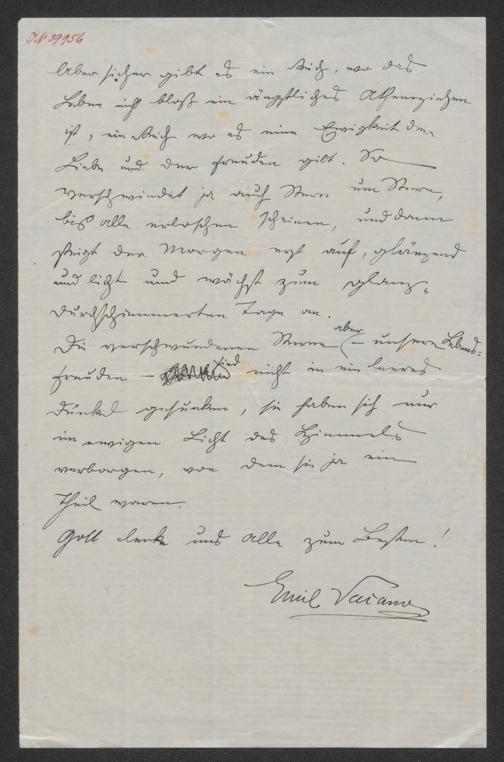 J.N. 39956
Aber sicher gibt es ein Reich, wo das
Leben nicht bloß ein ängstliches Athemziehen
ist, ein Reich wo es eine Ewigkeit der
Liebe und der Freuden gibt. So
verschwindet ja auch Stern um Stern,
bis alle erloschen scheinen, und dann
steigt der Morgen erst auf, glänzend
und licht und wächst zum glanz-
durchschimmerten Tage an.
Die verschwundenen Sterne aber – unsere Lebens=
freuden – sind nicht in ein leeres
Dunkel gesunken, sie haben sich nur
im ewigen Licht des Himmels
verborgen, von dem sie ja ein
Theil waren.
Gott lenke uns Alle zum Besten!
Emil Vacano